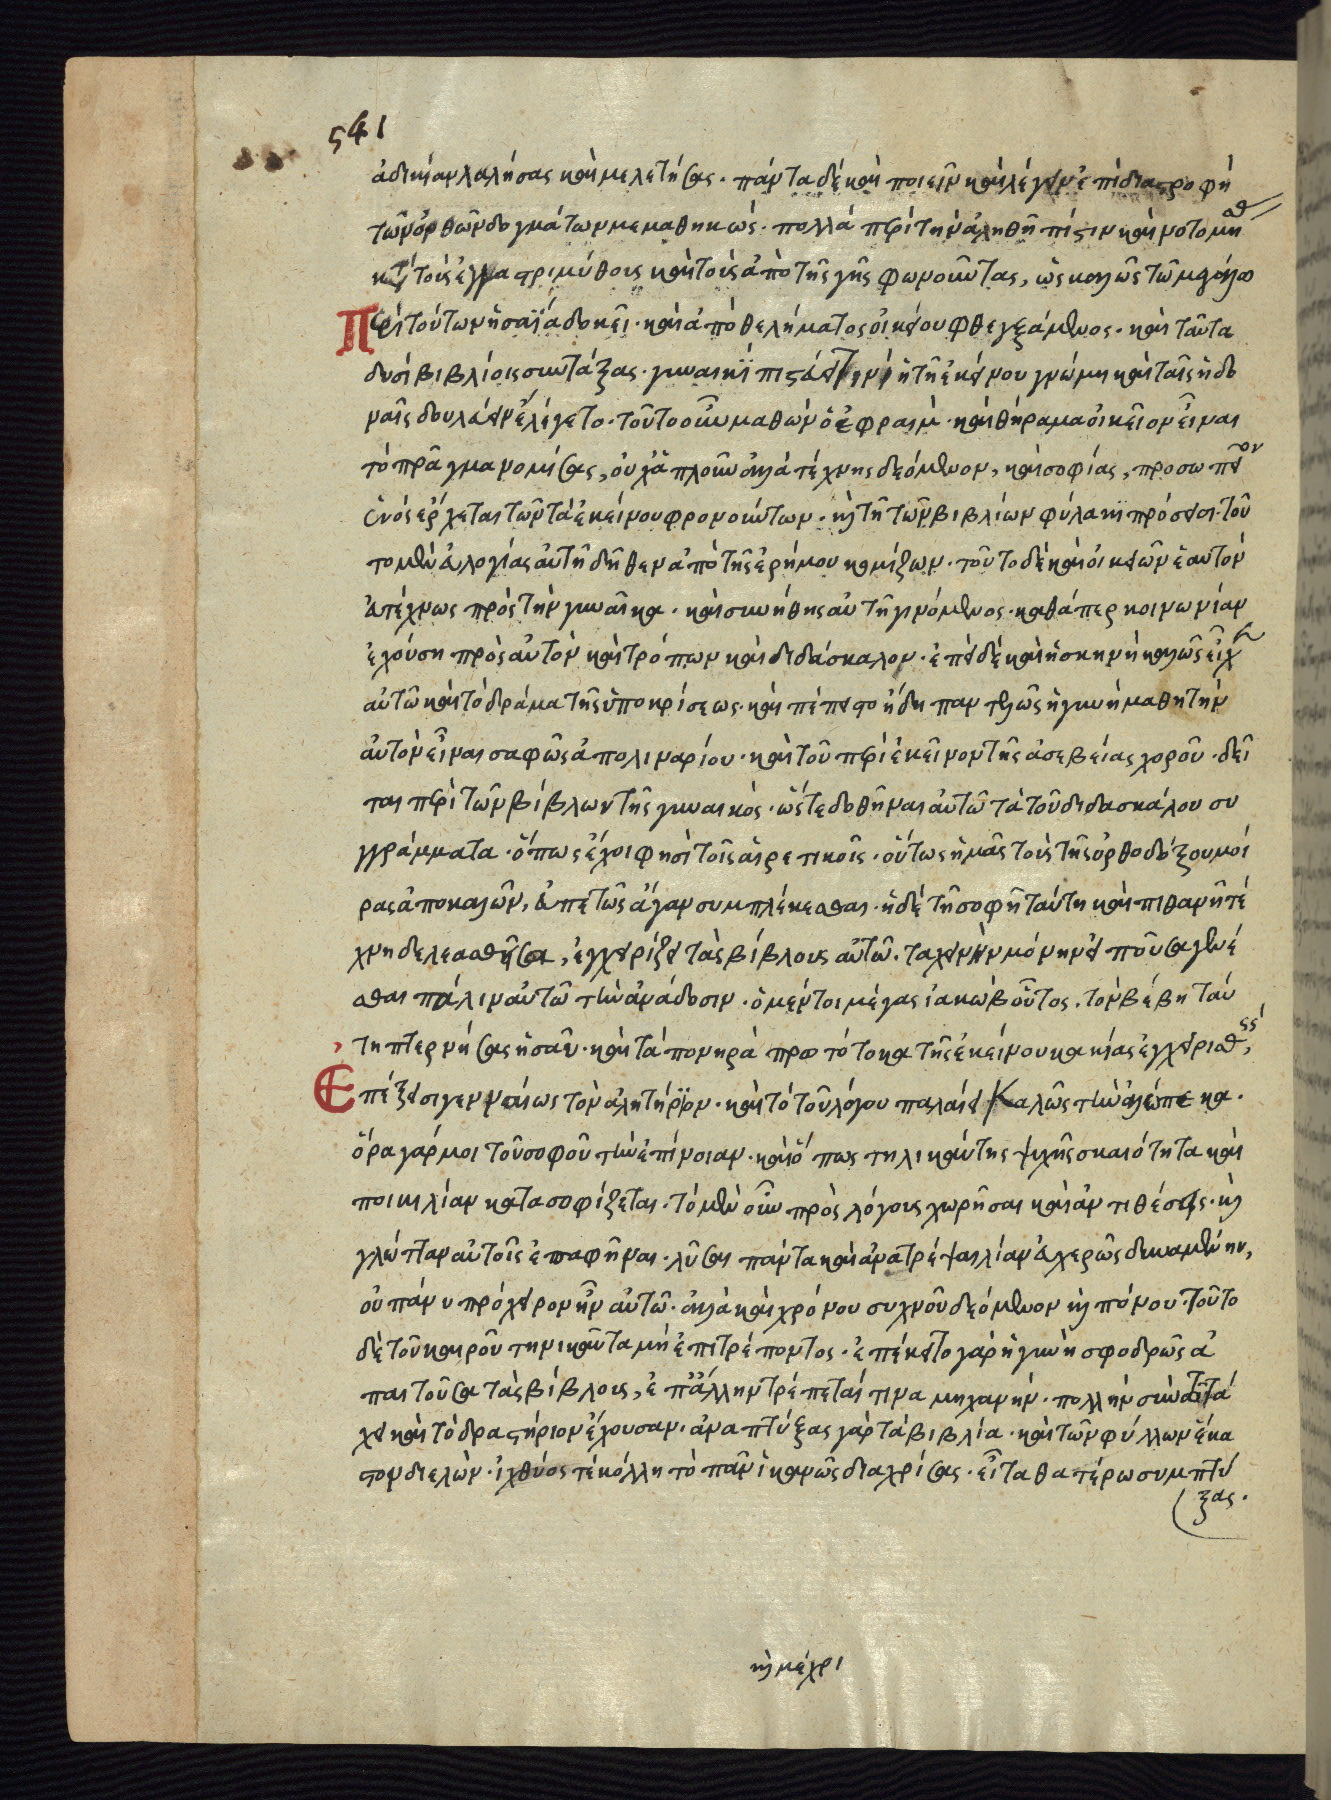 541
ἀδικίαν λαλήσας καὶ μελετήσας· πάντα δὲ καὶ ποιεῖν καὶ λέγειν ἐπὶ διαστροφῇ
τῶν ὀρθῶν δογμάτων μεμαθηκώς· πολλὰ περὶ τὴν ἀληθῆ πίστιν καινοτομή
κατὰ τοὺς ἐγγαστριμύθους καὶ τοὺς ἀπὸ τῆς γῆς φωνοῦντας, ὡς καλῶς τῶ μεγάλω
Περὶ τούτων ἡσαΐα δοκεῖ· καὶ ἀπὸ θελήματος οἰκείου φθεγξάμενος· καὶ ταῦτα
δυσὶ βιβλίοις συντάξας· γυναικὶ πιστεύει τινὶ ἣ τῇ ἐκείνου γνώμη καὶ ταῖς ἡδο
ναῖς δουλεύειν ἐλέγετο· τοῦτο οὖν μαθὼν ὁ ἐφραὶμ· καὶ θήραμα οἰκεῖον εἶναι
τὸ πρᾶγμα νομίσας, οὐχ ἁπλοῦν ἀλλὰ τέχνης δεόμενον, καὶ σοφίας, προσωπεῖον
ἑνὸς ἔρχεται τῶν τὰ ἐκείνου φρονούντων· καὶ τῇ τῶν βιβλίων φύλακι πρόσεισι· τοῦ
το μὲν εὐλογίας αὐτῇ δῆθεν ἀπὸ τῆς ἐρήμου κομίζων· τοῦτο δὲ καὶ οἰκειῶν ἑαυτὸν
εὐτέχνως πρὸς τὴν γυναῖκα· καὶ συνήθης αὐτῇ γινόμενος· καθάπερ κοινωνίαν
ἐχούση πρὸς αὐτὸν καὶ τρόπων καὶ διδάσκαλον· ἐπεὶ δὲ καὶ ἡ σκηνὴ καλῶς εἶχεν
αὐτῶ καὶ τὸ δράμα τῆς ὑποκρίσεως· καὶ πέπειστο ἤδη παντελῶς ἡ γυνὴ μαθητὴν
αὐτὸν εἶναι σαφῶς ἀπολιναρίου· καὶ τοῦ περὶ ἐκεῖνον τῆς ἀσεβείας χοροῦ· δεῖ
ται περὶ τῶν βίβλων τῆς γυναικός· ὥστε δοθῆναι αὐτῶ τὰ τοῦ διδασκάλου συ
γγράμματα· ὅπως ἔχοι φησὶ τοῖς αἱρετικοῖς· οὕτως ἡμᾶς τοὺς τῆς ὀρθοδόξου μοί
ρας ἀποκαλῶν, εὐπετῶς ἄγαν συμπλέκεσθαι· ἡ δὲ τῇ σοφῇ ταύτη καὶ πιθανῇ τέ
χνη δελεασθῆσα, ἐγχειρίζει τὰς βίβλους αὐτῶ. ταχεινὴν μόνην εἰποῦσα γενέ
σθαι πάλιν αὐτῶ τὴν ἀνάδοσιν· ὁ μέντοι μέγας ἰακὼβ οὗτος. τὸν βέβη ταύ
τη πτερνήσας ἡσαῦ· καὶ τὰ πονηρὰ πρωτότοκα τῆς ἐκείνου κακίας ἐγχειρισθεὶς,
Ἐπέξεισι γενναίως τὸν ἀλητήριον· καὶ τὸ τοῦ λόγου παλαίει καλῶς τὴν ἀλώπεκα.
ὅρα γάρ μοι τοῦ σοφοῦ τὴν ἐπίνοιαν· καὶ ὅπως τηλικαύτης ψυχῆς σκαιότητα καὶ
ποικιλίαν κατασοφίζεται· τὸ μὲν οὖν πρὸς λόγους χωρῆσαι καὶ ἀντιθέσεις· καὶ
γλῶτταν αὐτοῖς ἐπαφῆναι· λῦσαι πάντα καὶ ἀνατρέψαι λίαν εὐχερῶς δυναμένην,
οὐ πάνυ πρόχειρον ἦν αὐτῶ· ἀλλὰ καὶ χρόνου συχνοῦ δεόμενον καὶ πόνου· τοῦτο
δὲ τοῦ καιροῦ τηνικαῦτα μὴ ἐπιτρέποντος· ἐπέκειτο γὰρ ἡ γυνὴ σφοδρῶς ἀ
παιτοῦσα τὰς βίβλους, ἐπ' ἄλλην τρέπεταί τινα μηχανήν· πολλὴν σὺν τῶ τά
χει καὶ τὸ δραστήριον ἔχουσαν· ἀναπτύξας γὰρ τὰ βιβλία· καὶ τῶν φύλλων ἕκα
στον διελών· ἰχθύος τὲ κόλλη τὸ πᾶν ἱκανῶς διαχρίσας· εἶτα θατέρω συμπτύ
ξας.
καὶ μέχρι